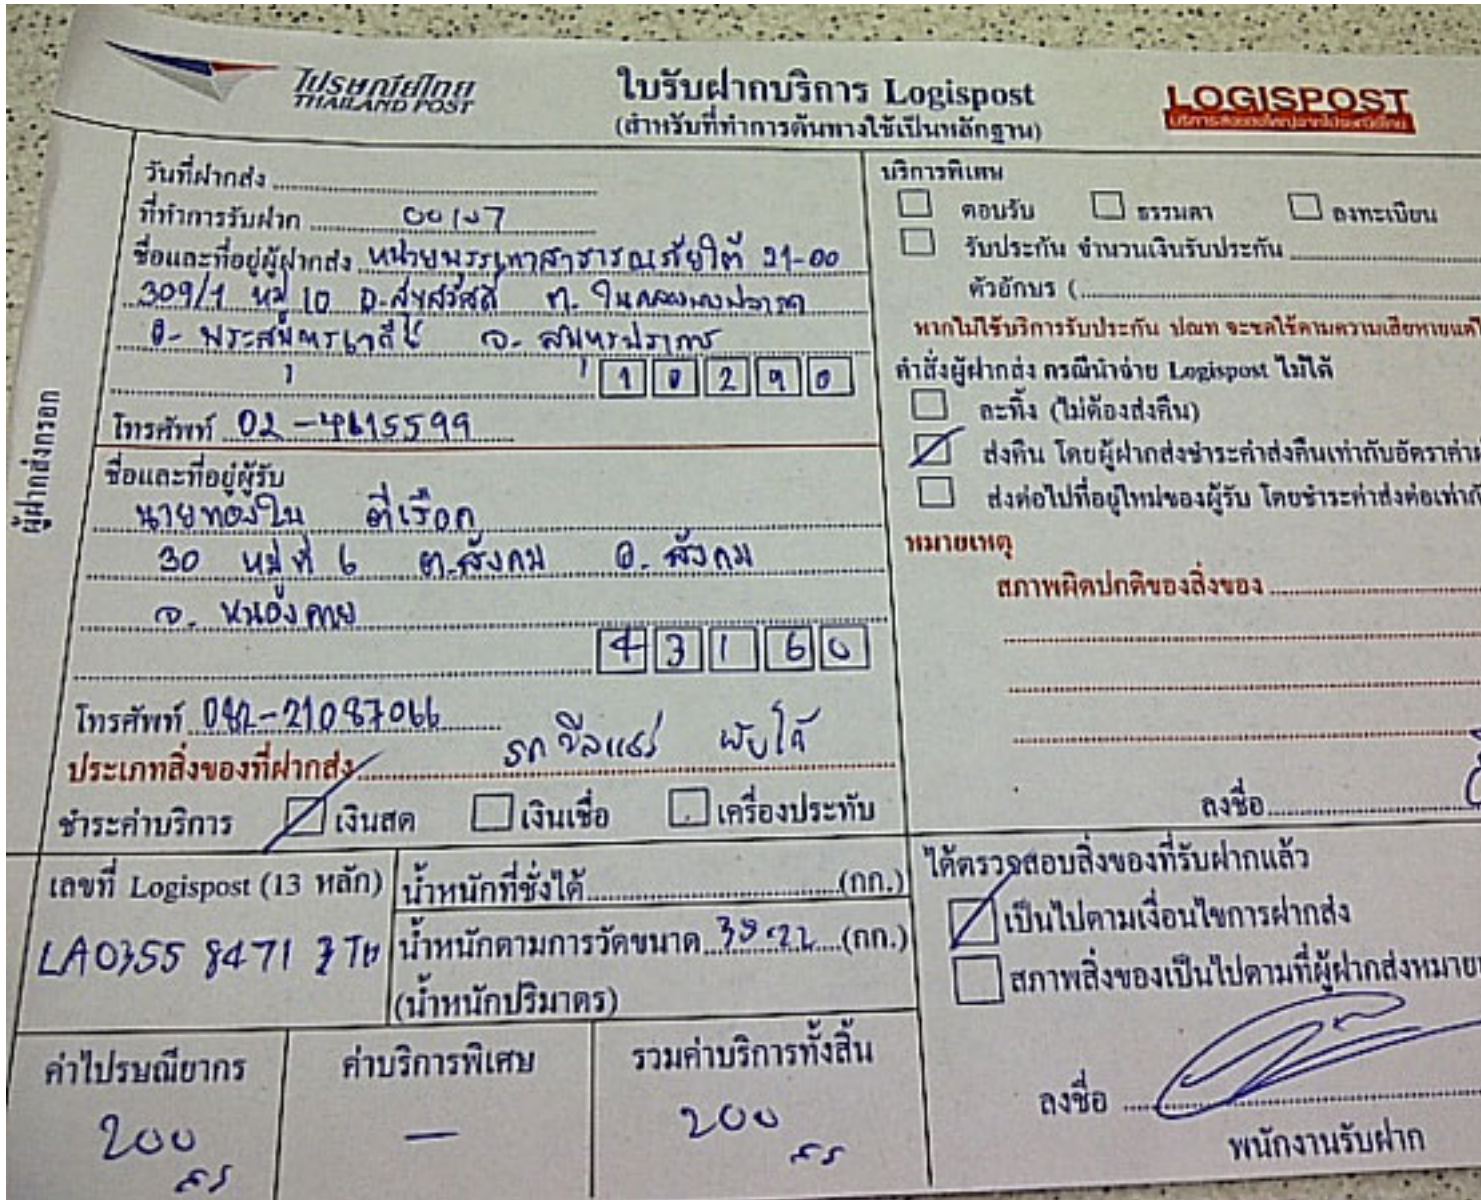 ไปรษณีย์ไทย
THAILAND POST
ใบรับฝากบริการ Logispost
(สำหรับที่ทำการต้นทางใช้เป็นหลักฐาน)
LOGISPOST
ผู้ฝากส่งกรอก
วันที่ฝากส่ง
ที่ทำการรับฝาก 00107
ชื่อและที่อยู่ผู้ฝากส่ง หน่วยบรรเทาสาธารณภัยใต้ 21-00
309/1 หมู่ 10 ถ.สุขสวัสดิ์ ต. ในคลองบางปลากด
อ. พระสมุทรเจดีย์ จ. สมุทรปราการ
10290
โทรศัพท์ 02-4615599
ชื่อและที่อยู่ผู้รับ
นายทองใบ
30 หมู่ที่ 6 ต.สังคม อ. สังคม
จ. หนองคาย
43160
โทรศัพท์ 082-21087066
ประเภทสิ่งของที่ฝากส่ง รถวีลแชร์ พับได้
ชำระค่าบริการ เงินสด เงินเชื่อ เครื่องประทับ
เลขที่ Logispost (13 หลัก)
8471
น้ำหนักที่ชั่งได้ (กก.)
น้ำหนักตามการวัดขนาด (กก.)
(น้ำหนักปริมาตร)
ค่าไปรษณียากร
200
ค่าบริการพิเศษ
—
รวมค่าบริการทั้งสิ้น
200
บริการพิเศษ
ตอบรับ ธรรมดา ลงทะเบียน
รับประกัน จำนวนเงินรับประกัน
ตัวอักษร (
หากไม่ใช้บริการรับประกัน ปณท จะชดใช้ตามความเสียหายแต่
คำสั่งผู้ฝากส่ง กรณีนำจ่าย Logispost ไม่ได้
ละทิ้ง (ไม่ต้องส่งคืน)
ส่งคืน โดยผู้ฝากส่งชำระค่าส่งคืนเท่ากับอัตราค่า
ส่งต่อไปที่อยู่ใหม่ของผู้รับ โดยชำระค่าส่งต่อเท่า
หมายเหตุ
สภาพผิดปกติของสิ่งของ
ลงชื่อ
ได้ตรวจสอบสิ่งของที่รับฝากแล้ว
เป็นไปตามเงื่อนไขการฝากส่ง
สภาพสิ่งของเป็นไปตามที่ผู้ฝากส่งหมาย
ลงชื่อ
พนักงานรับฝาก